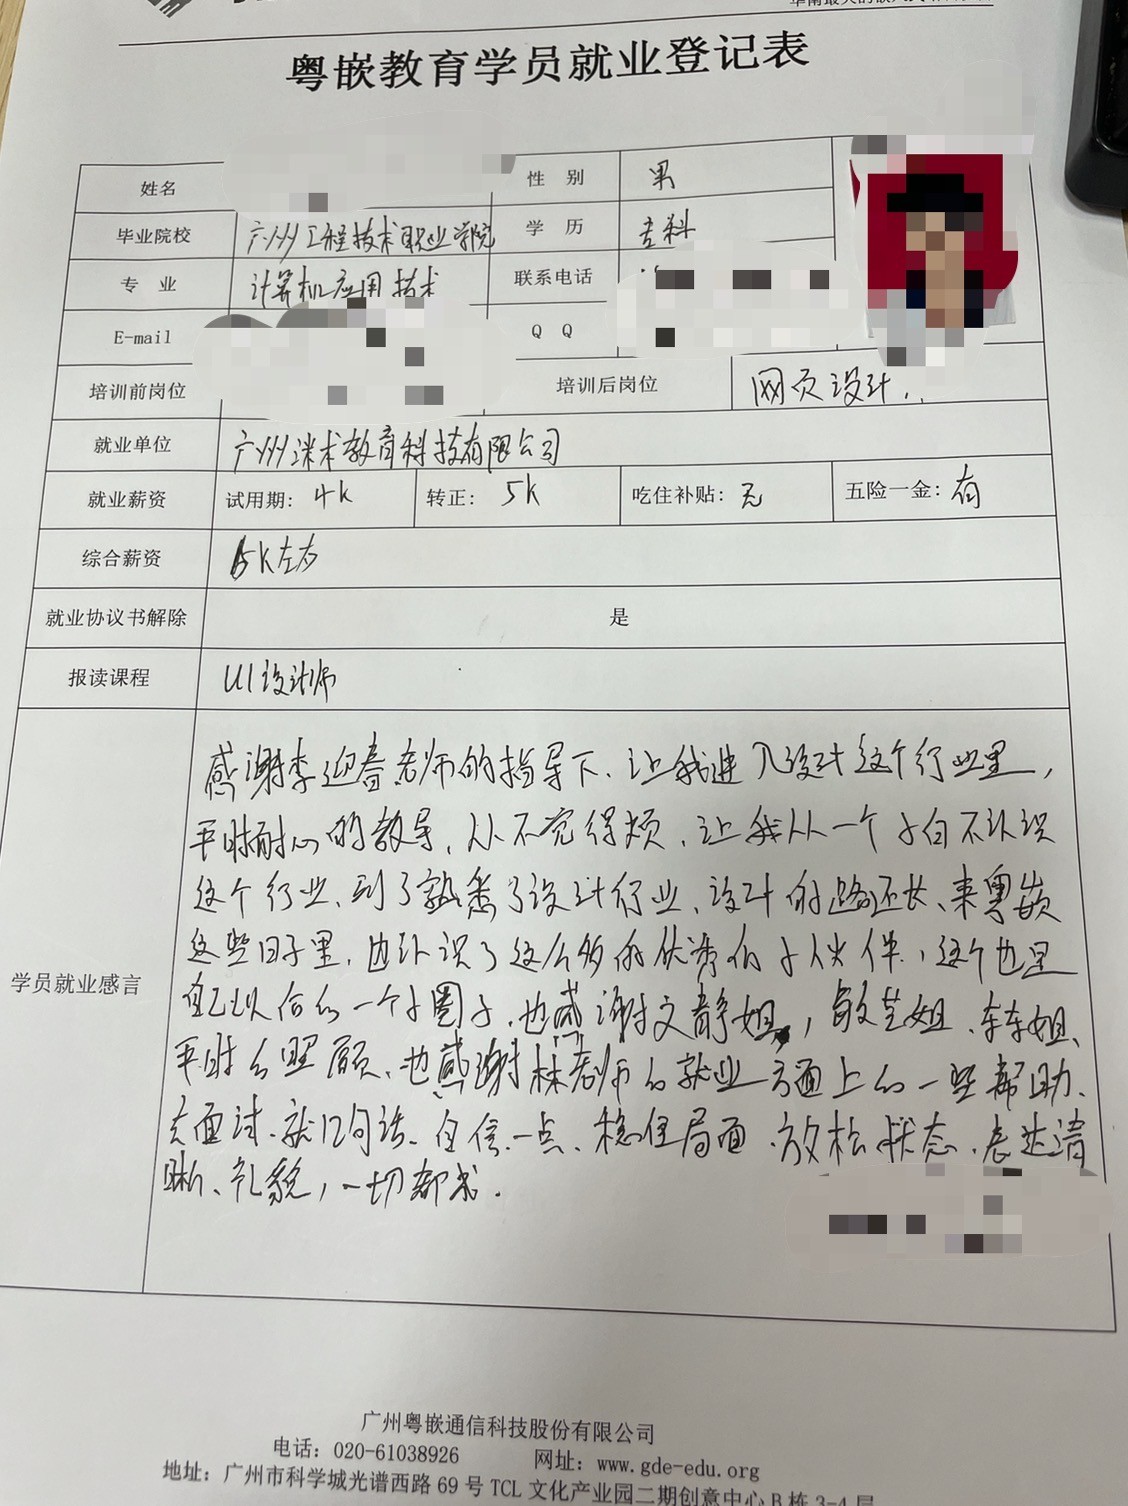 粤嵌教育学员就业登记表
姓名 性 别 男
毕业院校 广州工程技术职业学院 学 历 专科
专 业 计算机应用技术 联系电话
E-mail Q Q
培训前岗位 培训后岗位 网页设计.
就业单位 广州洣术教育科技有限公司
就业薪资 试用期: 4k 转正: 5k 吃住补贴: 无 五险一金: 有
综合薪资 5K左右
就业协议书解除 是
报读课程 UI设计师
感谢李迎春老师的指导下、让我进入设计这个行业里,
平时耐心的教导, 从不觉得烦, 让我从一个小白不认识
这个行业、到了熟悉了设计行业、设计的路还长、来粤嵌
这些日子里, 也认识了这么多的优秀的小伙伴, 这个也是
学员就业感言
自己以后的一个小圈子、也感谢文静姐, 敏芝姐、车车姐、
平时的照顾、也感谢林老师的就业方面上的一些帮助、
去面试、就12句话、自信一点、稳住局面、放松状态、表达清
晰、礼貌, 一切都成.
广州粤嵌通信科技股份有限公司
电话: 020-61038926 网址: www.gde-edu.org
地址: 广州市科学城光谱西路 69 号 TCL 文化产业园二期创意中心 B 栋 3-4 层